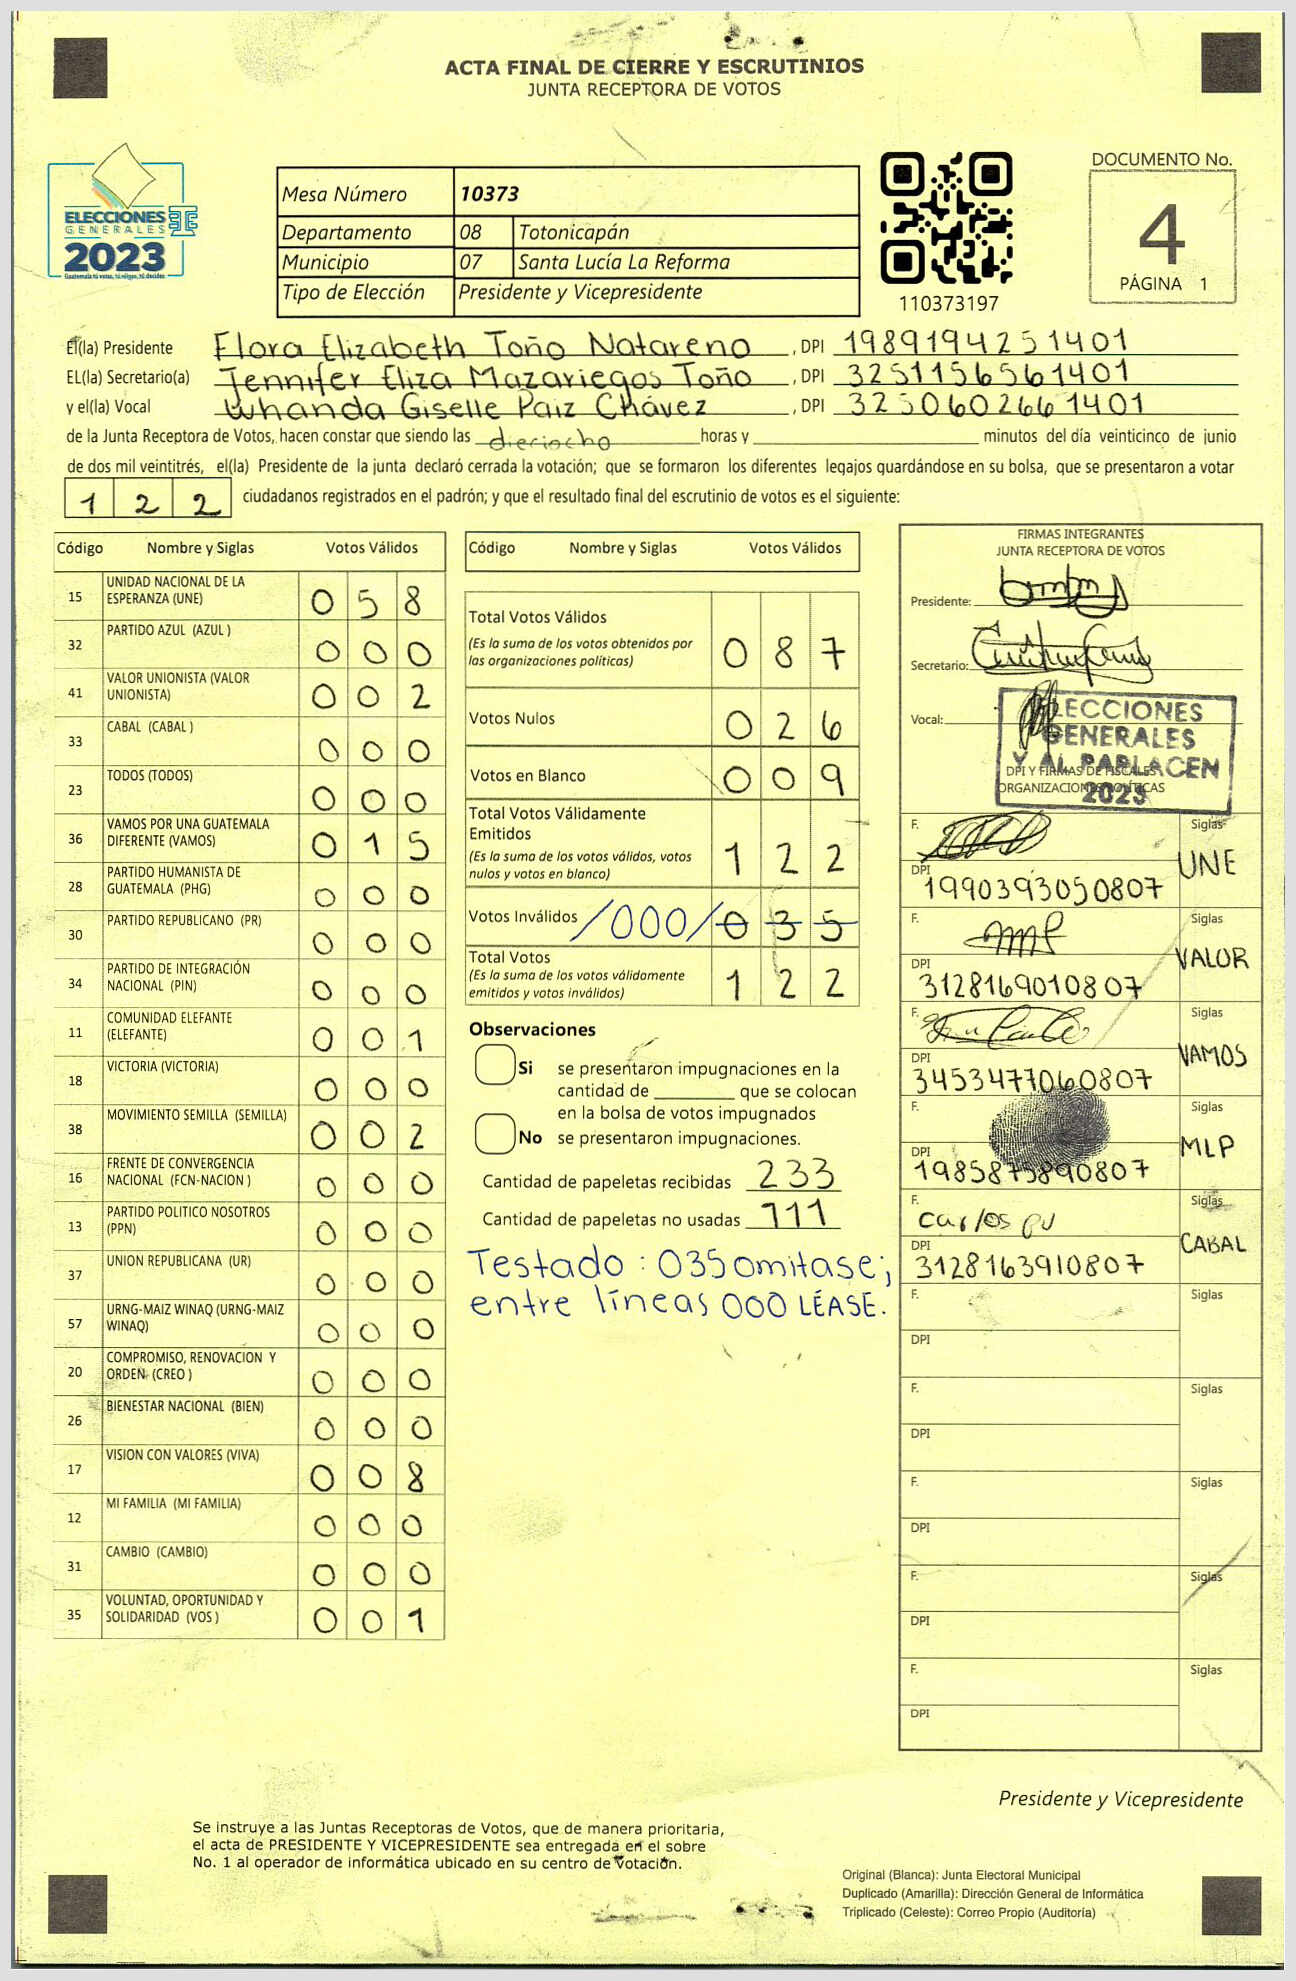 ACTA FINAL DE CIERRE Y ESCRUTINIOS
JUNTA RECEPTORA DE VOTOS
ELECCIONES
GENERALES
2023
Mesa Número 10373
Departamento 08 Totonicapán
Municipio 07 Santa Lucía La Reforma
Tipo de Elección Presidente y Vicepresidente
110373197
DOCUMENTO No.
4
PÁGINA 1
El(la) Presidente Flora Elizabeth Toño Natareno , DPI 1989194251401
EL(la) Secretario(a) Jennifer Eliza Mazariegos Toño , DPI 3251156561401
y el(la) Vocal Whanda Giselle Paiz Chávez , DPI 3250602661401
de la Junta Receptora de Votos, hacen constar que siendo las dieciocho horas y minutos del día veinticinco de junio
de dos mil veintitrés, el(la) Presidente de la junta declaró cerrada la votación; que se formaron los diferentes legajos guardándose en su bolsa, que se presentaron a votar
1 2 2 ciudadanos registrados en el padrón; y que el resultado final del escrutinio de votos es el siguiente:
Código Nombre y Siglas Votos Válidos
15 UNIDAD NACIONAL DE LA
ESPERANZA (UNE) 0 5 8
32 PARTIDO AZUL (AZUL ) 0 0 0
41 VALOR UNIONISTA (VALOR
UNIONISTA) 0 0 2
33 CABAL (CABAL ) 0 0 0
23 TODOS (TODOS) 0 0 0
36 VAMOS POR UNA GUATEMALA
DIFERENTE (VAMOS) 0 1 5
28 PARTIDO HUMANISTA DE
GUATEMALA (PHG) 0 0 0
30 PARTIDO REPUBLICANO (PR) 0 0 0
34 PARTIDO DE INTEGRACIÓN
NACIONAL (PIN) 0 0 0
11 COMUNIDAD ELEFANTE
(ELEFANTE) 0 0 1
18 VICTORIA (VICTORIA) 0 0 0
38 MOVIMIENTO SEMILLA (SEMILLA) 0 0 2
16 FRENTE DE CONVERGENCIA
NACIONAL (FCN-NACION ) 0 0 0
13 PARTIDO POLITICO NOSOTROS
(PPN) 0 0 0
37 UNION REPUBLICANA (UR) 0 0 0
57 URNG-MAIZ WINAQ (URNG-MAIZ
WINAQ) 0 0 0
20 COMPROMISO, RENOVACION Y
ORDEN (CREO ) 0 0 0
26 BIENESTAR NACIONAL (BIEN) 0 0 0
17 VISION CON VALORES (VIVA) 0 0 8
12 MI FAMILIA (MI FAMILIA) 0 0 0
31 CAMBIO (CAMBIO) 0 0 0
35 VOLUNTAD, OPORTUNIDAD Y
SOLIDARIDAD (VOS ) 0 0 1
Código Nombre y Siglas Votos Válidos
Total Votos Válidos
(Es la suma de los votos obtenidos por
las organizaciones políticas) 0 8 7
Votos Nulos 0 2 6
Votos en Blanco 0 0 9
Total Votos Válidamente
Emitidos
(Es la suma de los votos válidos, votos
nulos y votos en blanco) 1 2 2
Votos Inválidos /000/ 0 3 5
Total Votos
(Es la suma de los votos válidamente
emitidos y votos inválidos) 1 2 2
Observaciones
Si se presentaron impugnaciones en la
cantidad de ________ que se colocan
en la bolsa de votos impugnados
No se presentaron impugnaciones.
Cantidad de papeletas recibidas 233
Cantidad de papeletas no usadas 111
Testado : 035 omitase;
entre líneas 000 LÉASE.
FIRMAS INTEGRANTES
JUNTA RECEPTORA DE VOTOS
Presidente:
Secretario:
Vocal:
ELECCIONES
GENERALES
Y AL PARLACEN
2023
DPI Y FIRMAS DE FISCALES
ORGANIZACIONES POLÍTICAS
F. Siglas
UNE
DPI
1990393050807
F. Siglas
VALOR
DPI
3128169010807
F. Siglas
VAMOS
DPI
3453477060807
F. Siglas
MLP
DPI
1985875890807
F. Siglas
carlos pu
CABAL
DPI
3128163910807
F. Siglas
DPI
F. Siglas
DPI
F. Siglas
DPI
F. Siglas
DPI
F. Siglas
DPI
Presidente y Vicepresidente
Se instruye a las Juntas Receptoras de Votos, que de manera prioritaria,
el acta de PRESIDENTE Y VICEPRESIDENTE sea entregada en el sobre
No. 1 al operador de informática ubicado en su centro de votación.
Original (Blanca): Junta Electoral Municipal
Duplicado (Amarilla): Dirección General de Informática
Triplicado (Celeste): Correo Propio (Auditoría)